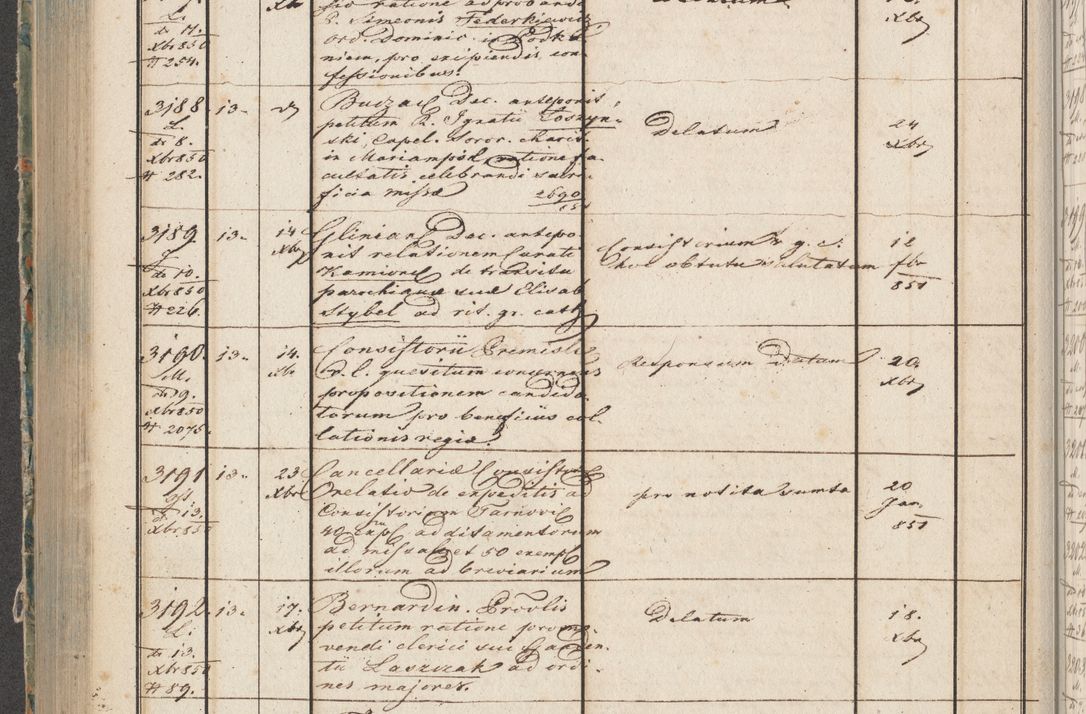 P. Simeonis Federkiewicz
Ord. Dominic. in Podka-
niem, pro excipiendis con-
fessionibus.
de 17.
Xbr 850
# 254.
Xbr
3188
L.
de 8.
Xbr 850
# 282.
13.
Buczac Dec. anteponit,
petitum R. Ignatii Toszyn-
ski, Capel. Soror. Charit.
in Mariampol, ratione fa-
cultatis celebrandi sacri-
ficia missæ 2690
Delatum
24
Xbr
3189
J.
de 10.
Xbr 850
# 226.
13.
14
Xbr
Glinian. Dec. antepo-
nit relationem Curati
Kamionc de transitu
parochianæ suæ Elisab
Stybel ad rit. gr. cath
Consistorium g. c.
hoc obtutu salutatum
12
fbr
851
3190.
M.
de 9.
Xbr 850
# 2075.
13.
14.
Xbr
Consistorii Premisl
r. l. quesitum concernens
propositionem candida-
torum pro beneficiis col-
lationis regiæ.
Responsum Datum
20
Xbr
3191
de 13.
Xbr 850
13.
23
Xbr
Cancellariæ Consistor
relatio de expeditis ad
Consistorium Tarnovic
40 Expl additamentorum
ad missale et 50 exempl
illorum ad breviarium
pro notitia sumta
20
Jan.
851
3192.
L.
de 13.
Xbr 850
# 89.
13.
17.
Xbr
Bernardin. Provlis
petitum ratione promo-
vendi clerici sui Gauden-
tii Laszczak ad ordi-
nes majores.
Delatum
18.
Xbr